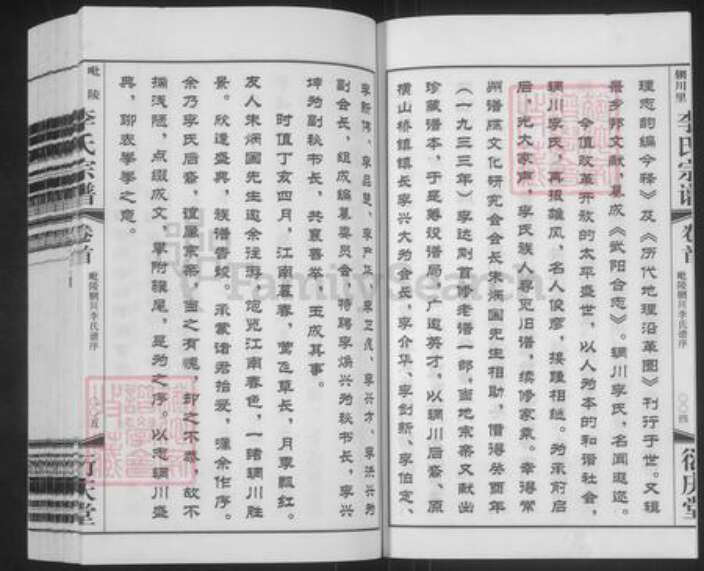 辋川里 李氏宗谱 卷首 毗陵辋川李氏谱序 〇〇四 衍庆堂
理志韵编今释》及《历代地理沿革图》刊行于世。又辑
录乡邦文献，纂成《武阳合志》。辋川李氏，名闻遐迩。
今值改革开放的太平盛世，以人为本的和谐社会，
辋川李氏，再振雄风，名人俊彦，接踵相继。为承前启
后，光大家声，李氏族人寻觅旧谱，续修家乘。幸得常
州谱牒文化研究会会长朱炳国先生相助，借得癸酉年
（一九三三年）李达刚首修老谱一部，当地宗亲又献出
珍藏谱本，于是筹设谱局，广邀英才，以辋川后裔、原
横山桥镇镇长李兴大为会长，李介华、李剑新、李伯定、
李新伟、李品楚、李产华、李卫虎、李兴方、李洪兴为
副会长，组成编纂委员会，特聘李焕兴为秘书长，李兴
坤为副秘书长，共襄善举，玉成其事。
时值丁亥四月，江南暮春，莺飞草长，月季飘红。
友人朱炳国先生邀余往游，饱览江南春色，一睹辋川胜
景。欣逢盛典，族谱告竣。承蒙诸君抬爱，潼余作序。
余乃李氏后裔，谊属宗亲，当之有愧，却之不恭，故不
揣浅陋，点缀成文，草附骥尾，是为之序。以志辋川盛
典，聊表拳拳之意。
毗陵 李氏宗谱 卷首 毗陵辋川李氏谱序 〇〇五 衍庆堂
FamilySearch